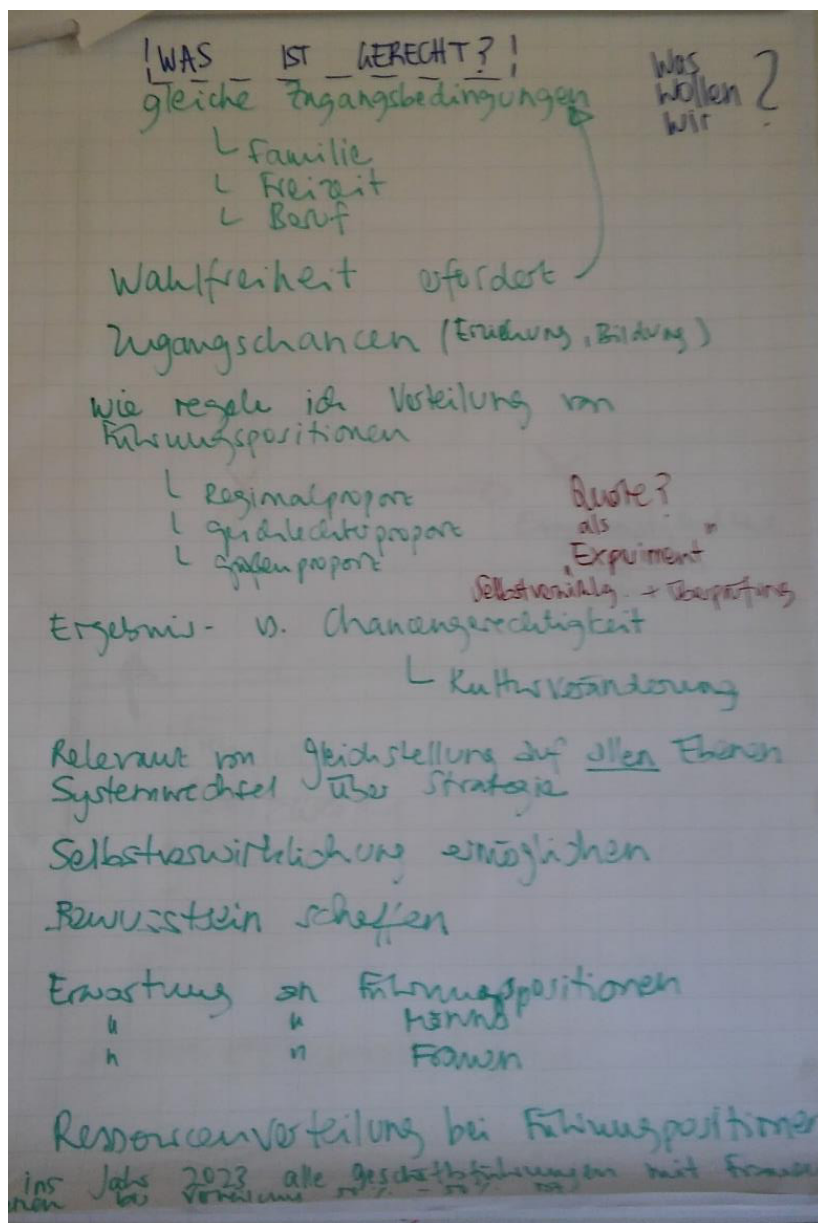 ! WAS IST GERECHT ? !
Was
wollen ?
wir
gleiche Zugangsbedingungen
Familie
Freizeit
Beruf
Wahlfreiheit erfordert
Zugangschancen (Erziehung, Bildung)
Wie regele ich Verteilung von
Führungspositionen
Regionalproporz
Geschlechterproporz
Quote?
als "
Experiment"
Selbstverpflichtg. + Überprüfung
Ergebnis- v. Chancengerechtigkeit
Kulturveränderung
Relevanz von Gleichstellung auf allen Ebenen
Systemwechsel über Strategie
Selbstverwirklichung ermöglichen
Bewusstsein schaffen
Erwartung an Führungspositionen
" " Männer
" " Frauen
Ressourcenverteilung bei Führungspositionen
ins Jahr 2023 alle Geschäftsführungen mit Frauen